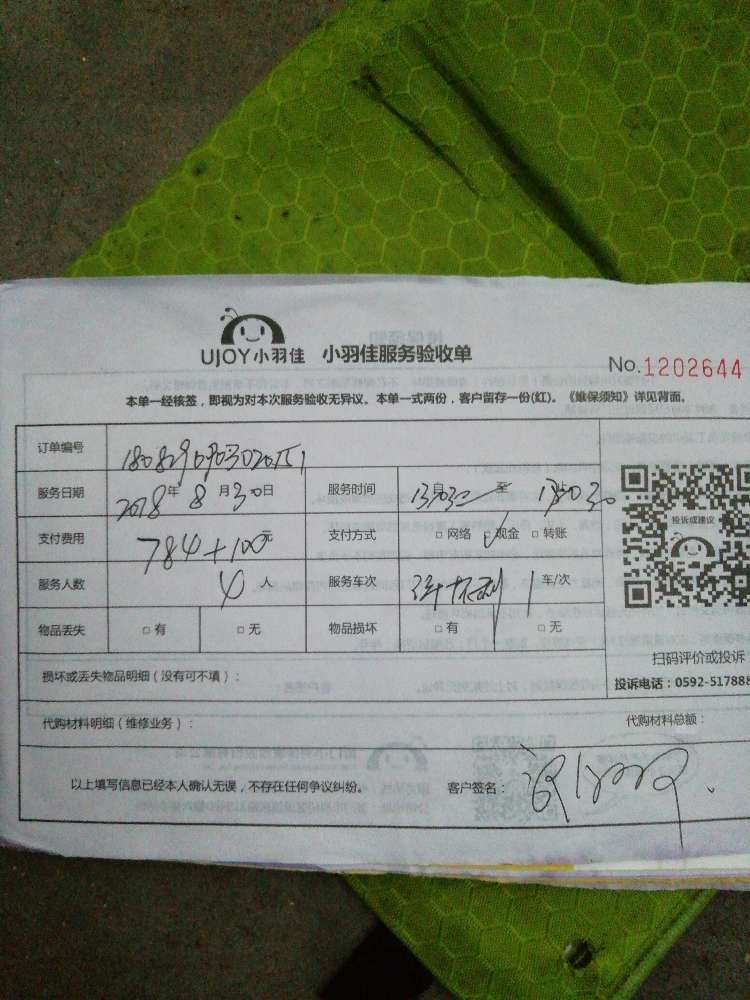 UJOY小羽佳 小羽佳服务验收单
No.1202644
本单一经核签，即视为对本次服务验收无异议。本单一式两份，客户留存一份(红)。《维保须知》详见背面。
订单编号
服务日期 2018年 8月30日 服务时间 自 至
支付费用 784+100元 支付方式 □ 网络 □ 现金 □ 转账
服务人数 4 服务车次 1 车/次
物品丢失 □ 有 □ 无 物品损坏 □ 有 □ 无
投诉或建议
扫码评价或投诉
投诉电话：0592-517888
损坏或丢失物品明细（没有可不填）：
代购材料明细（维修业务）： 代购材料总额：
以上填写信息已经本人确认无误，不存在任何争议纠纷。 客户签名：